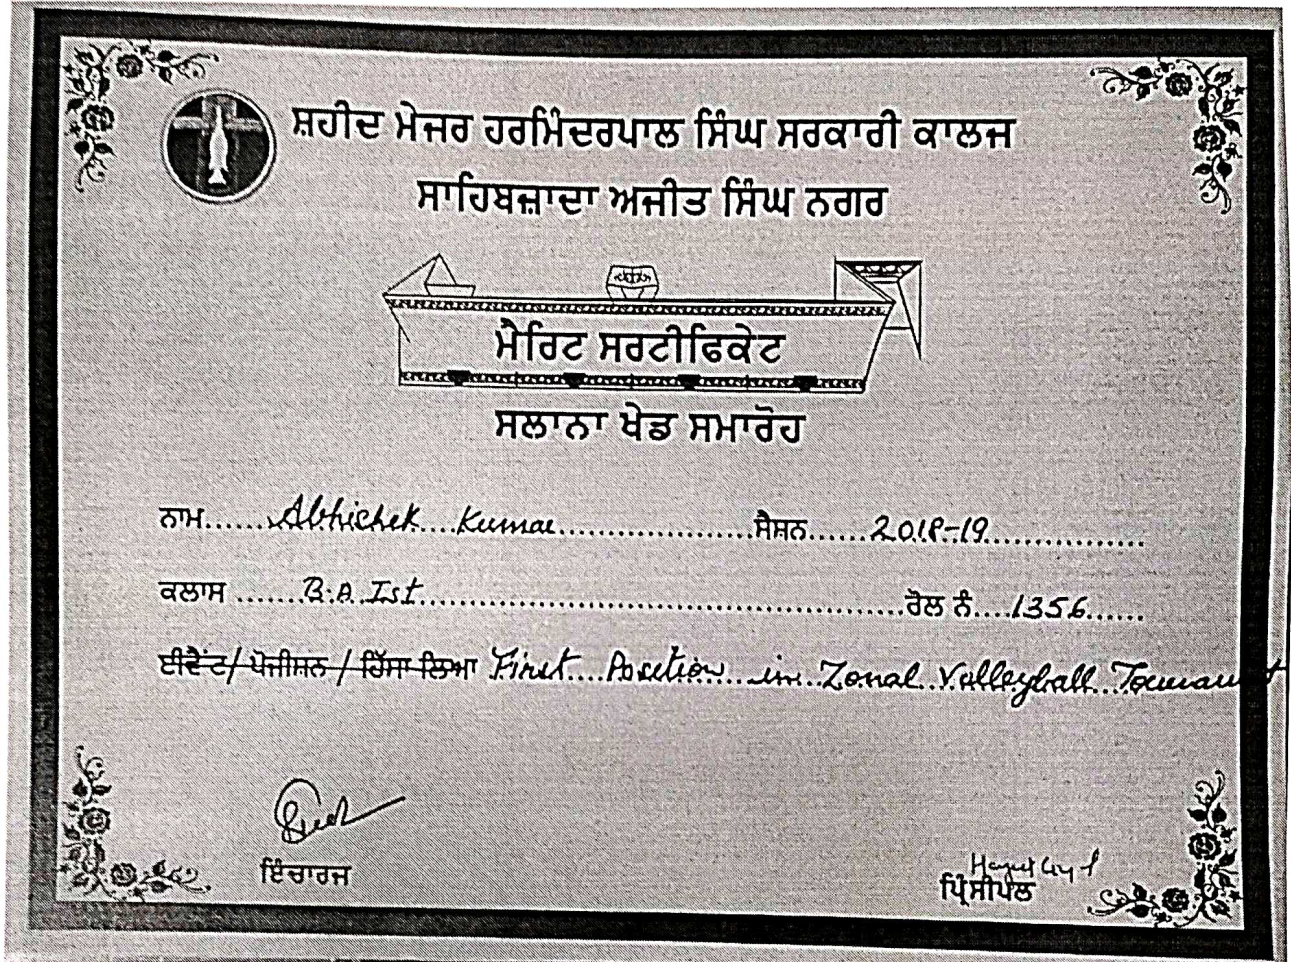 ਸ਼ਹੀਦ ਮੇਜਰ ਹਰਮਿੰਦਰਪਾਲ ਸਿੰਘ ਸਰਕਾਰੀ ਕਾਲਜ
ਸਾਹਿਬਜ਼ਾਦਾ ਅਜੀਤ ਸਿੰਘ ਨਗਰ
ਮੈਰਿਟ ਸਰਟੀਫਿਕੇਟ
ਸਲਾਨਾ ਖੇਡ ਸਮਾਰੋਹ
ਨਾਮ......Abhichek....Kumar....................ਸੈਸ਼ਨ......2018-19................
ਕਲਾਸ ......B.A.Ist..................................................ਰੋਲ ਨੰ....1356......
ਈਵੈਂਟ/ ਪੋਜੀਸ਼ਨ / ਹਿੱਸਾ ਲਿਆ First....Position...in..Zonal..Volleyball..
ਇੰਚਾਰਜ
ਪ੍ਰਿੰਸੀਪਲ